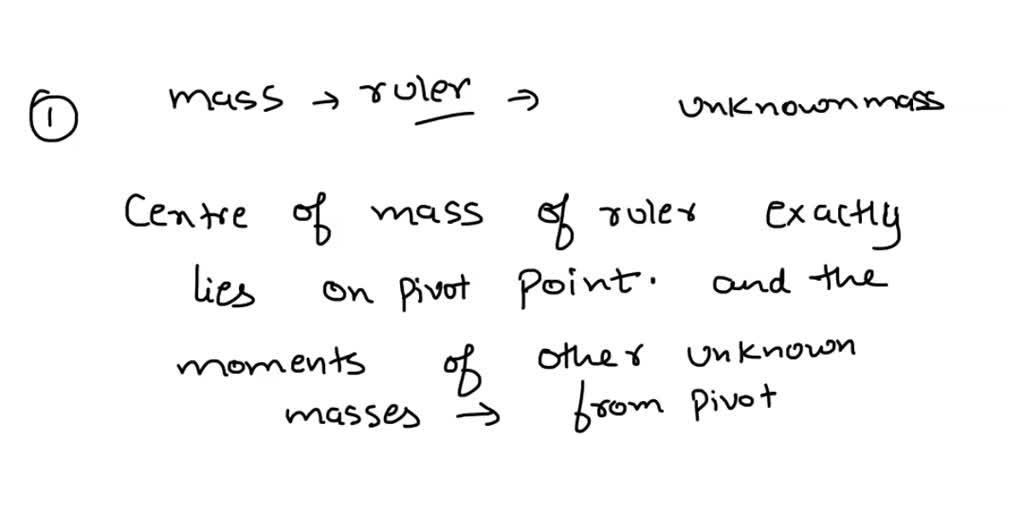 ① mass → ruler → unknown mass
Centre of mass of ruler exactly
lies on pivot point. and the
moments of other unknown
masses → from pivot